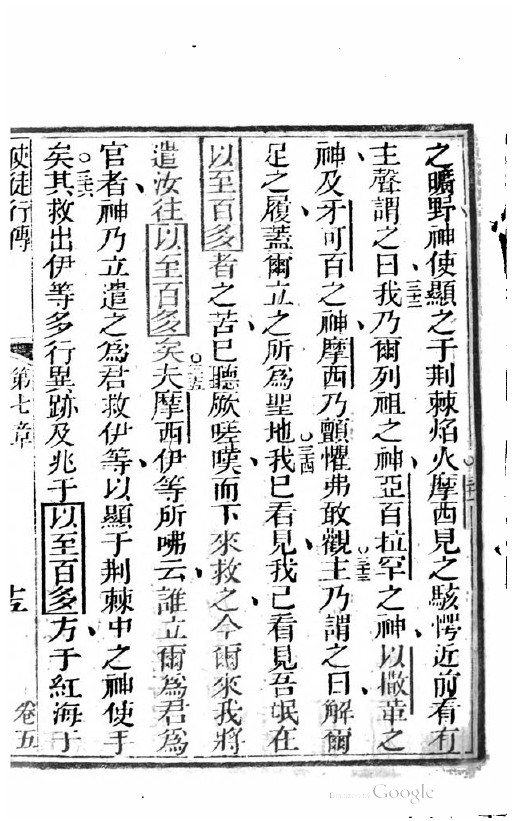 之曠野神使顯之于荆棘焰火摩西見之駭愕近前看有
主聲謂之曰我乃爾列祖之神亞百拉罕之神以撒革之
神及牙可百之神摩西乃顫懼弗敢觀主乃謂之曰解爾
足之履蓋爾立之所為聖地我已看見我已看見吾氓在
以至百多者之苦已聽厥嗟嘆而下來救之今爾來我將
遣汝往以至百多矣夫摩西伊等所咈云誰立爾為君為
官者神乃立遣之為君救伊等以顯于荆棘中之神使手
矣其救出伊等多行異跡及兆于以至百多方于紅海于
使徒行傳 第七章 卷五
Digitized by Google